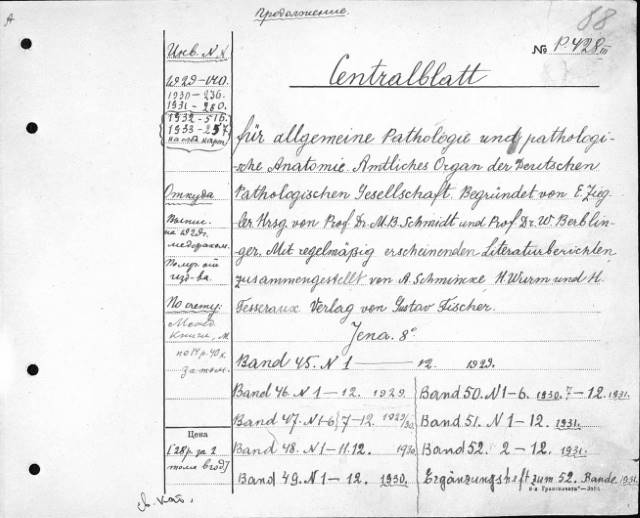 Продолжение.
88
№ P.428 III
Инв. N.N.
1929-140.
1930-236.
1931-280.
1932-516.
1933-257.
Centralblatt
für allgemeine Pathologie und pathologi-
sche Anatomie. Amtliches Organ der Deutschen
Pathologischen Gesellschaft. Begründet von E. Zieg-
ler. Hrsg. von Prof. Dr. M.B. Schmidt und Prof. Dr. W. Berblin-
ger. Mit regelmäßig erscheinenden Literaturberichten
zusammengestellt von A. Schmincke, H. Wurm und H.
Fesseraux. Verlag von Gustav Fischer.
Jena. 8°
Откуда
Выпис.
на 1929г.
изд-ва.
По счету:
Межд.
Книги, М.
по 14 р. 40 к.
за том.
Цена
[28 р. за 2
тома в год]
Band 45. N 1 — 12. 1929.
Band 46. N 1-12. 1929.
Band 47. N 1-6} 7-12. 1929/30.
Band 48. N 1-11.12. 1930.
Band 49. N 1-12. 1930.
Band 50. N 1-6. 1930. 7-12. 1931.
Band 51. N 1-12. 1931.
Band 52. 2-12. 1931.
Ergänzungsheft zum 52. Bande. 1931.